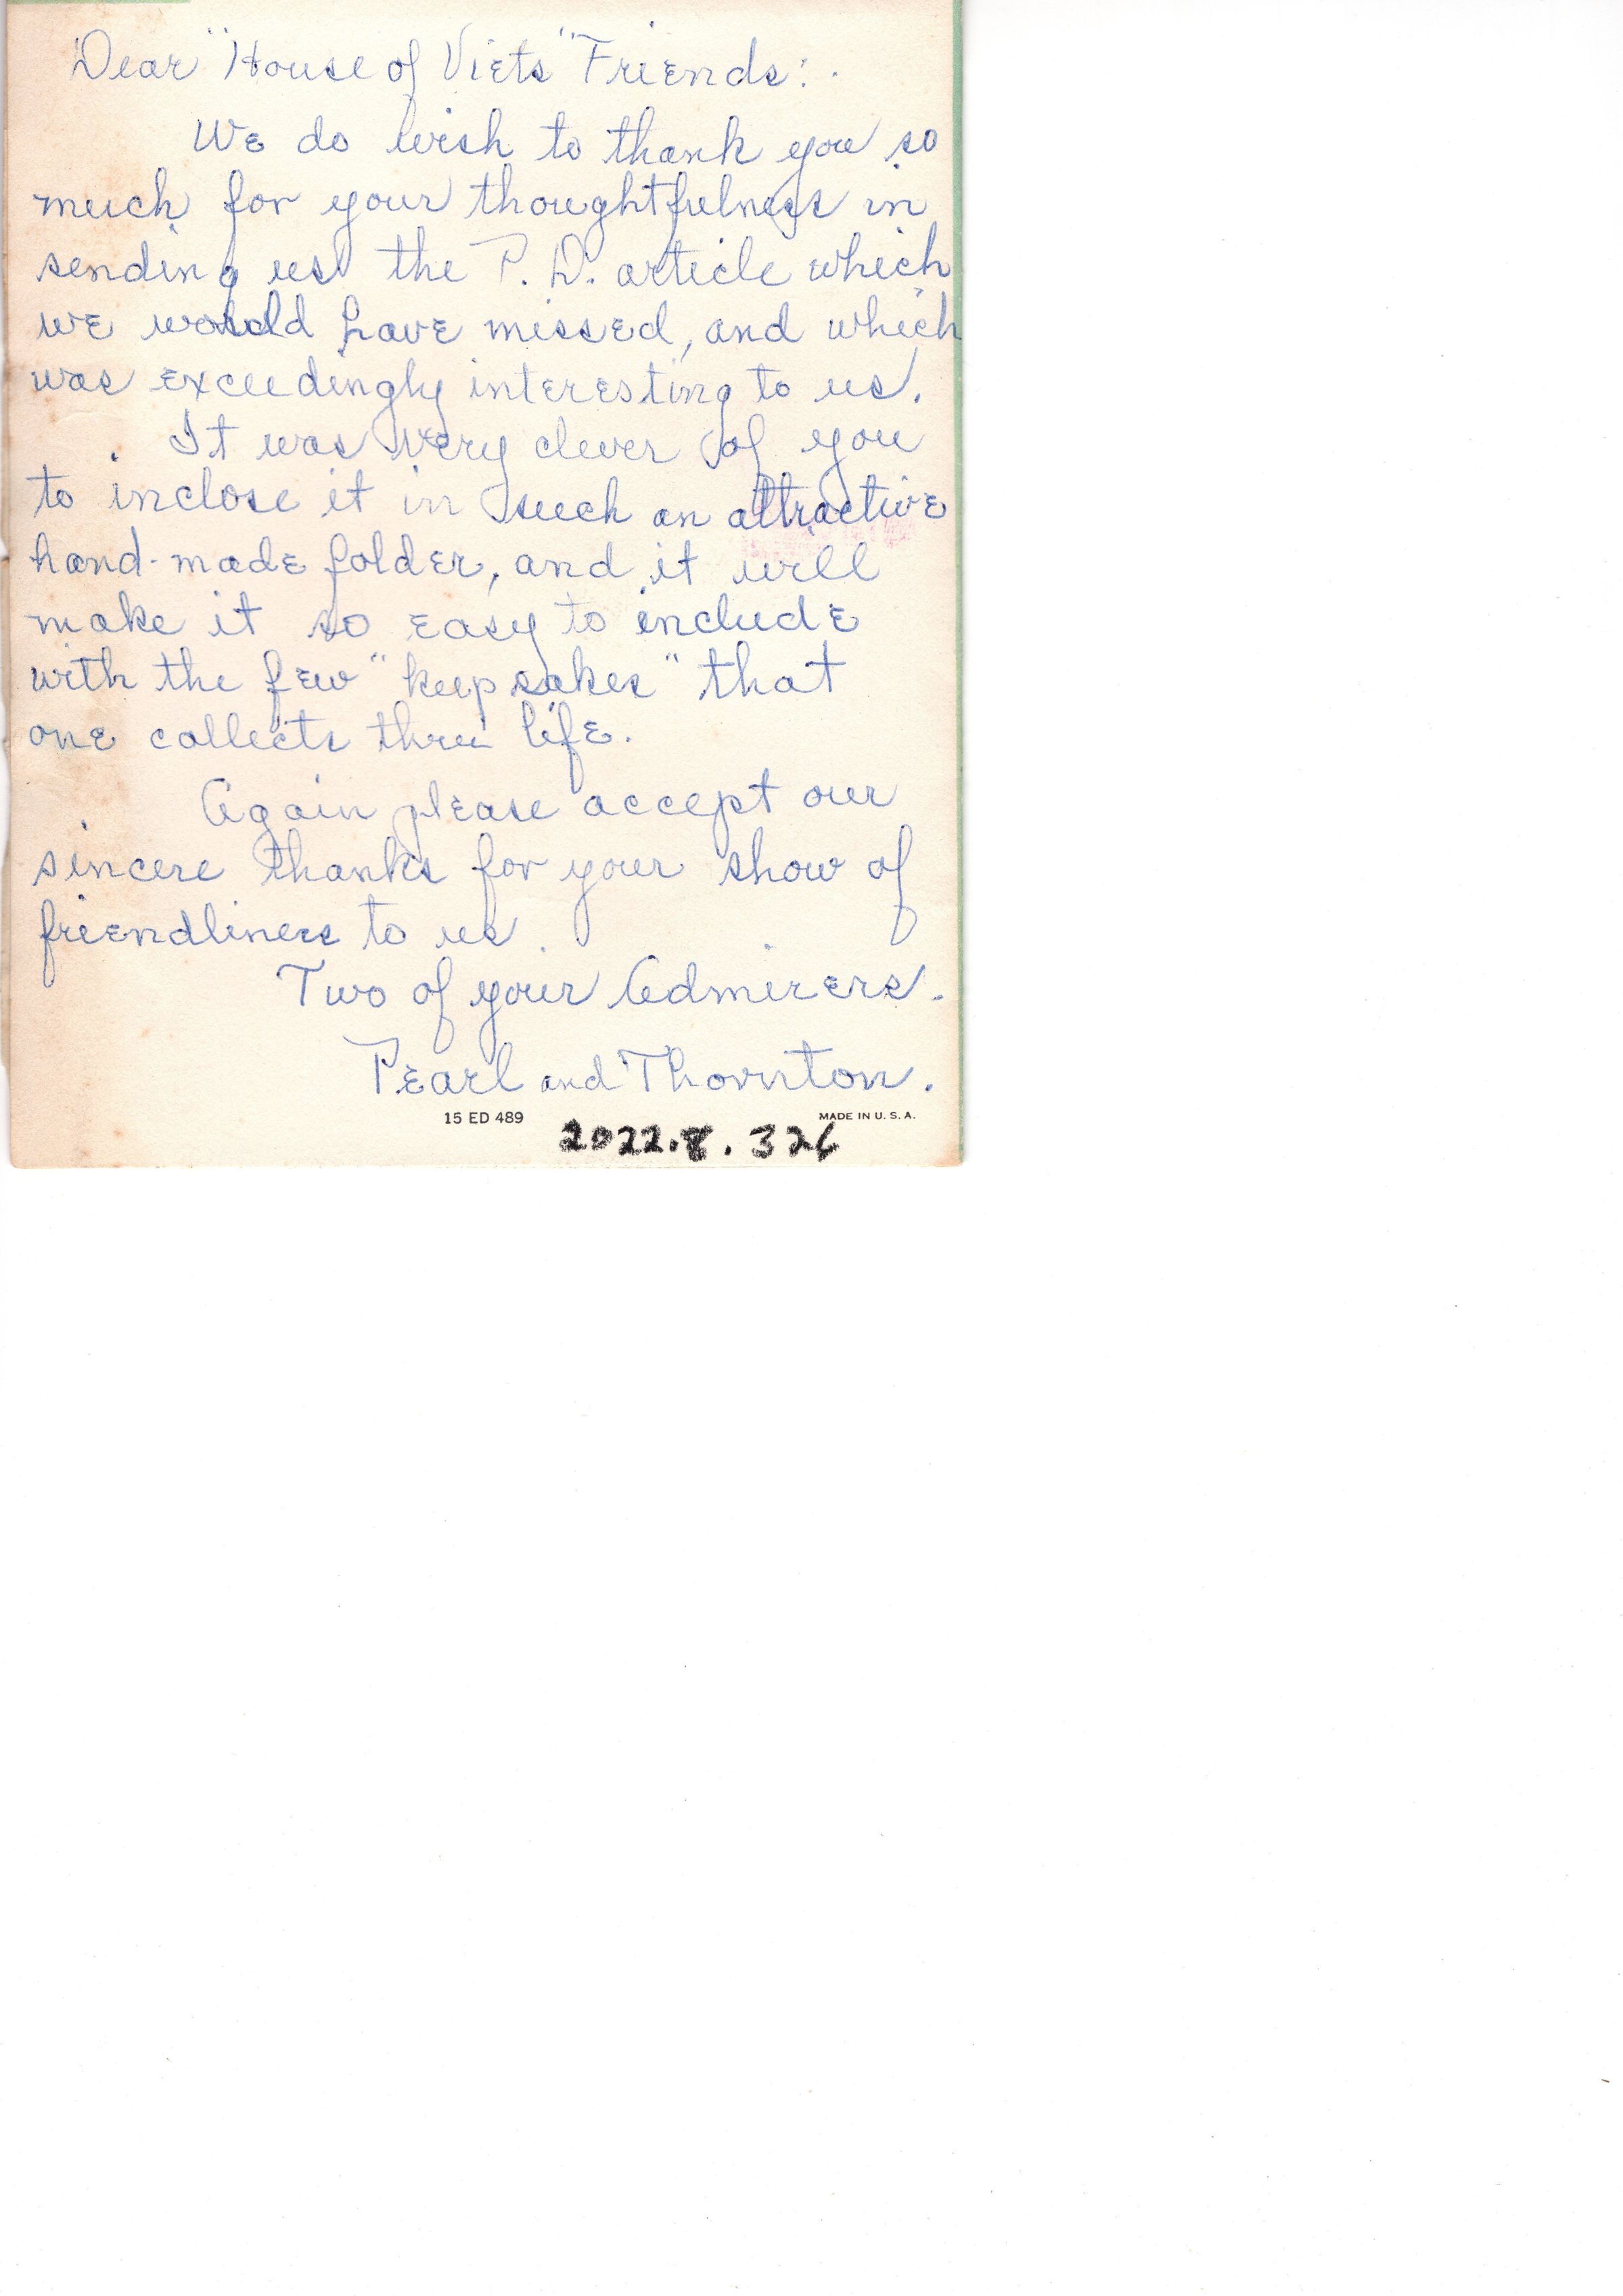 Dear "House of Viets" Friends:
We do wish to thank you so
much for your thoughtfulness in
sending us the P. D. article which
we would have missed, and which
was exceedingly interesting to us.
It was very clever of you
to inclose it in such an attractive
hand-made folder, and it will
make it so easy to include
with the few "keepsakes" that
one collects thru life.
Again please accept our
sincere thanks for your show of
friendliness to us.
Two of your Admirers.
Pearl and Thornton.
15 ED 489 MADE IN U. S. A.
2022.8.326